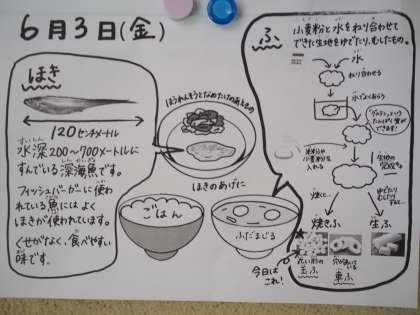 6月3日(金)
ほき
120センチメートル
すいしん
水深200～700メートルに
すんでいる深海魚です。
フィッシュバーガーに使わ
れている魚には よく
ほきが使われています。
くせがなく、食べやすい
味です。
ほうれんそうとなめたけのあえもの
ほきのあげに
ごはん
ふだまじる
今日は
これ!
ふ
小麦粉と水をねり合わせて
できた生地をゆでたり、むしたもの。
水
ねり合わせる
水でよくあらう
グルテンという
たんぱく質が
できます!
小麦粉を
入れる
生地の
完成
焼くと…
ゆでたり
むしたり
すると…
焼きふ
生ふ
丸い形の
玉ふ
穴があいている
車ふ